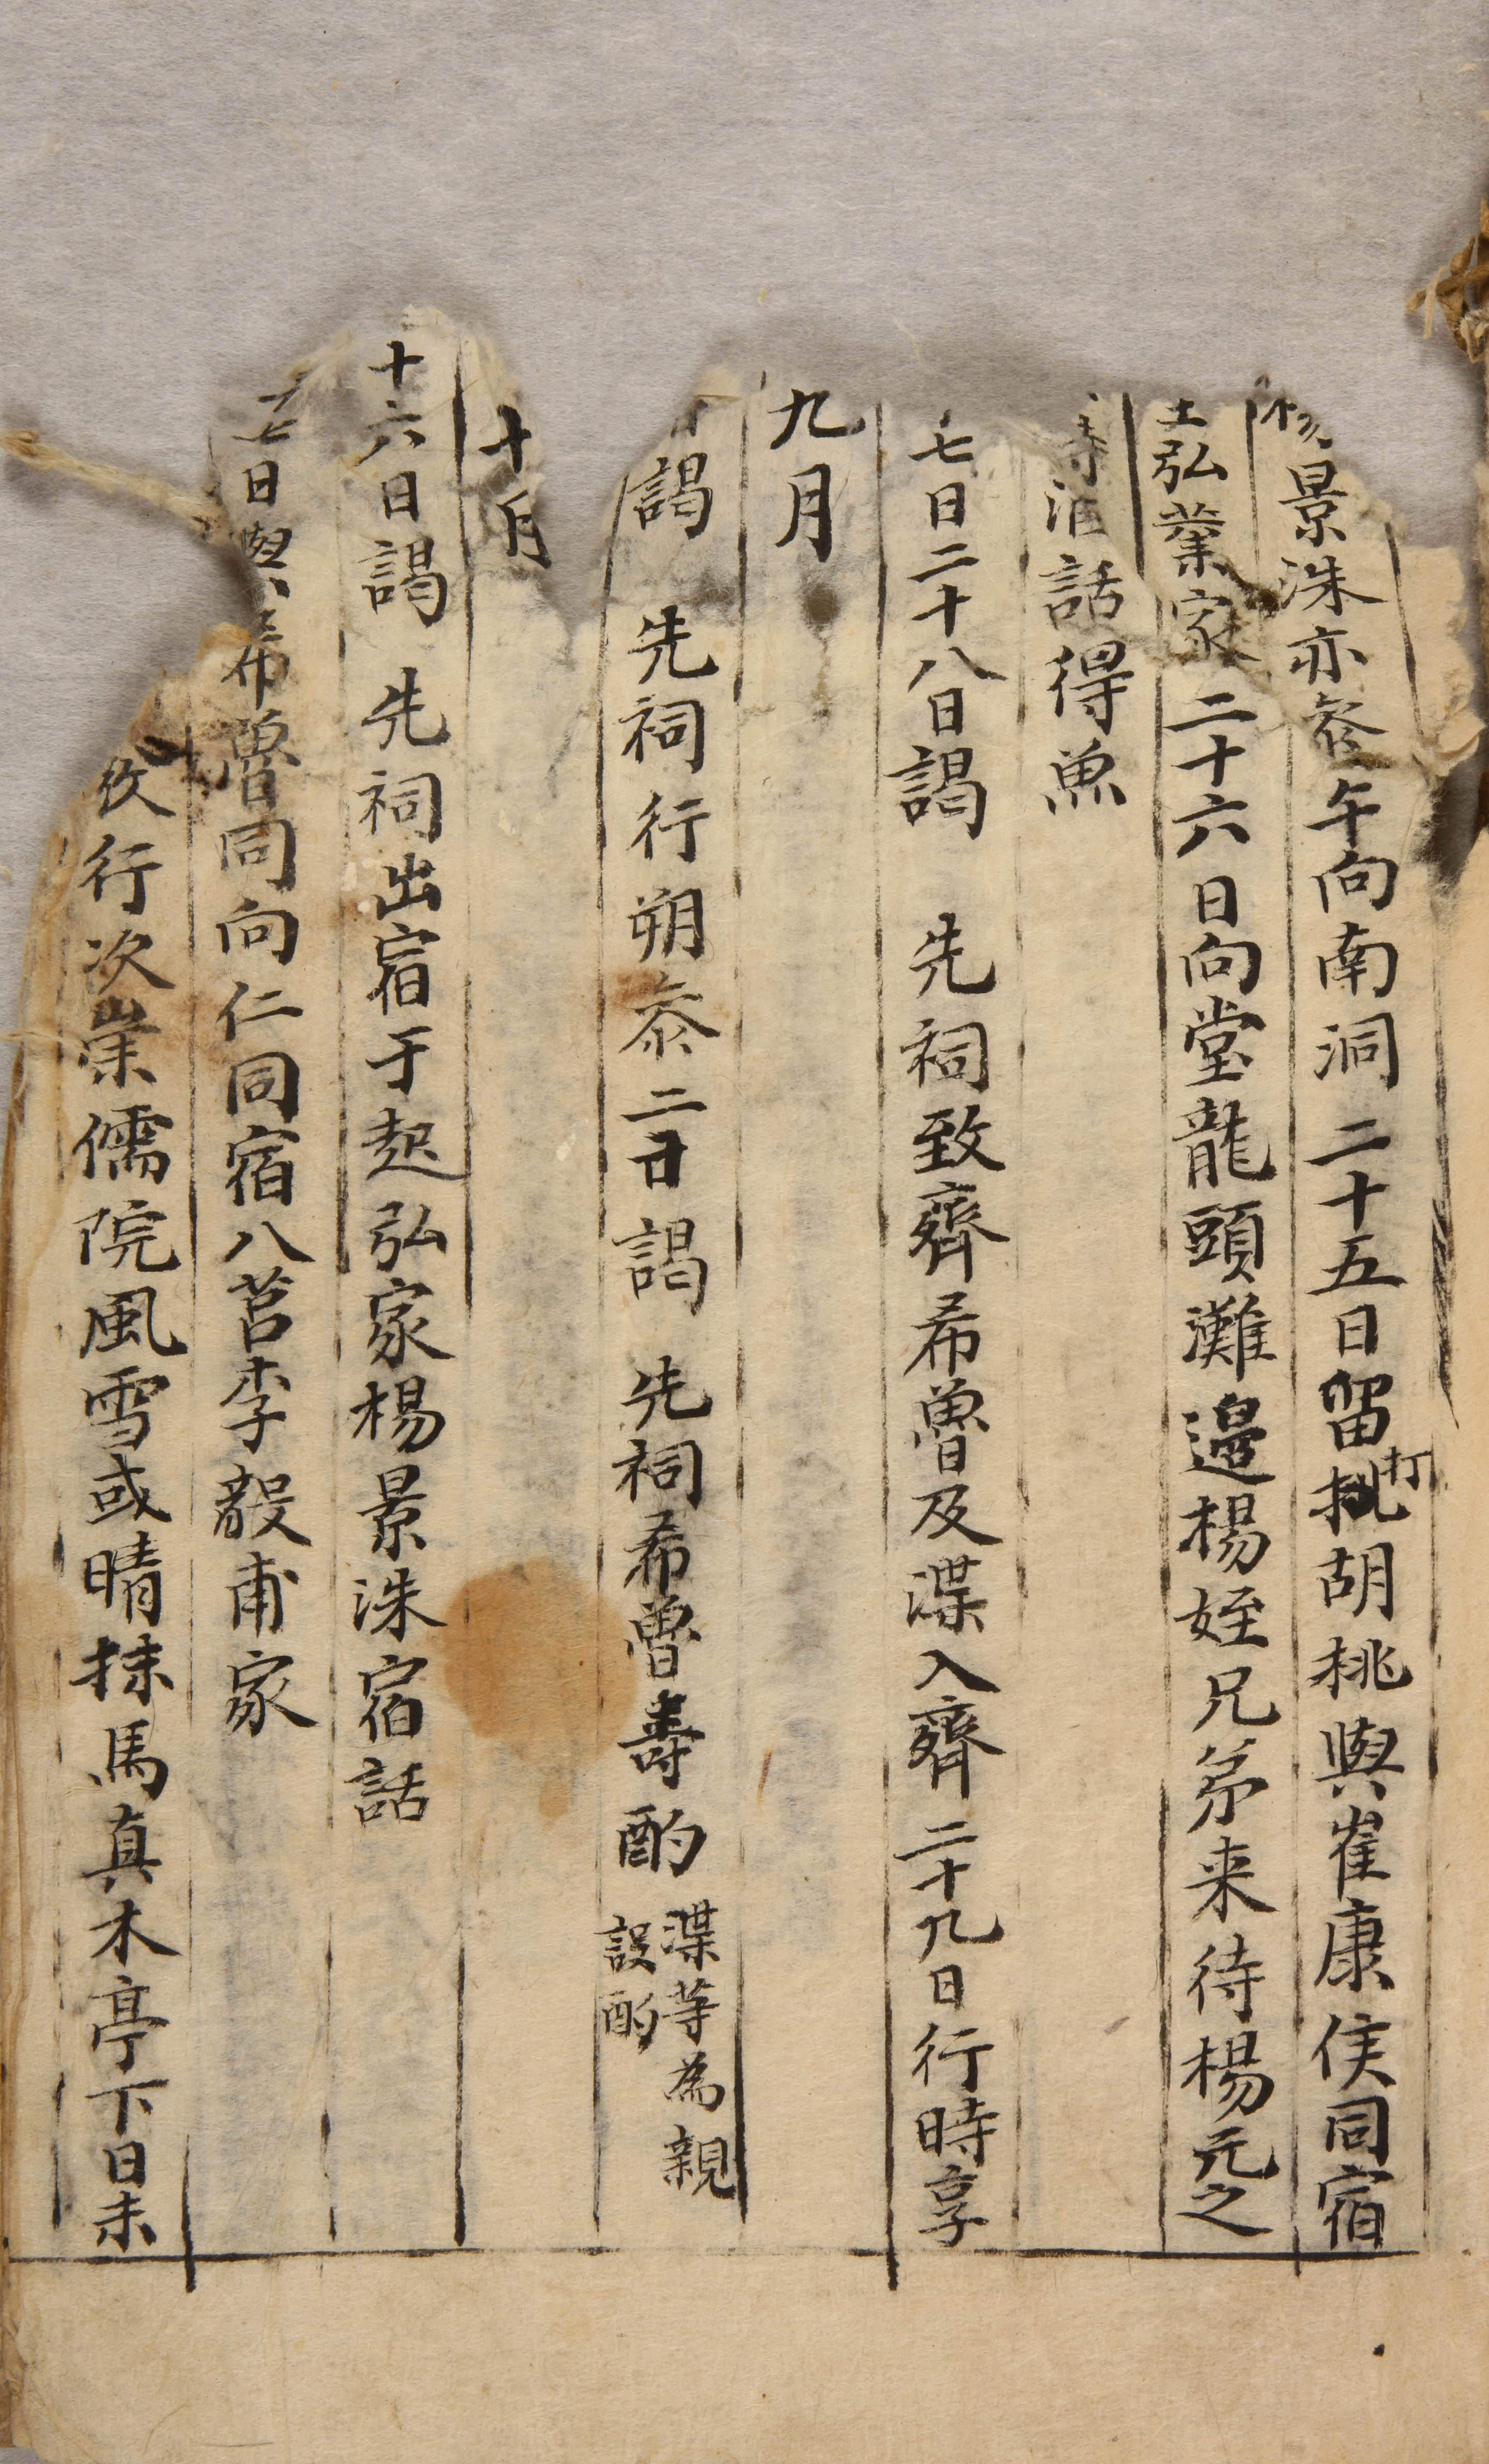 楊景洙亦參午向南洞二十五日留打桃胡桃與崔康侯同宿
弘業家二十六日向堂龍頭灘邉楊姪兄弟来待楊元之
酒話得魚
七日二十八日謁 先祠致齊希魯及渫入齊二十九日行時享
九月
謁 先祠行朔叅二日謁 先祠希曾壽酌渫等為親
誤酌
十月
十六日謁 先祠出宿于起弘家楊景洙宿話
七日與希魯同向仁同宿八莒李毅甫家
牧行次崇儒院風雪或晴抹馬真木亭下日未